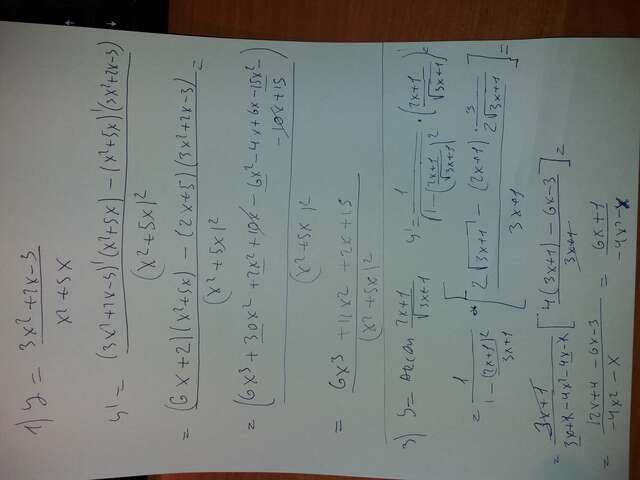 1) y = (3x²+2x-3)/(x²+5x)
y' = ((3x²+2x-3)'(x²+5x) - (x²+5x)'(3x²+2x-3))/(x²+5x)²
= ((6x+2)(x²+5x) - (2x+5)(3x²+2x-3))/(x²+5x)² =
= (6x³+30x²+2x²+10x-6x²-4x+6x-15x²-10x+15)/(x²+5x)²
= (6x³+11x²+2x+15)/(x²+5x)²
3) y = (2x+1)/√(3x+1) y' = 1/√(1-((2x+1)/√(3x+1))²) · ((2x+1)/√(3x+1))' =
= 1/(1-(2x+1)²/(3x+1)) · [(2√(3x+1) - (2x+1)·3/(2√(3x+1)))/(3x+1)] =
= (3x+1)/(3x+1-4x²-4x-1) [(4(3x+1)-6x-3)/(3x+1)] =
= (12x+4-6x-3)/(-4x²-x) = (6x+1)/(-4x²-x)